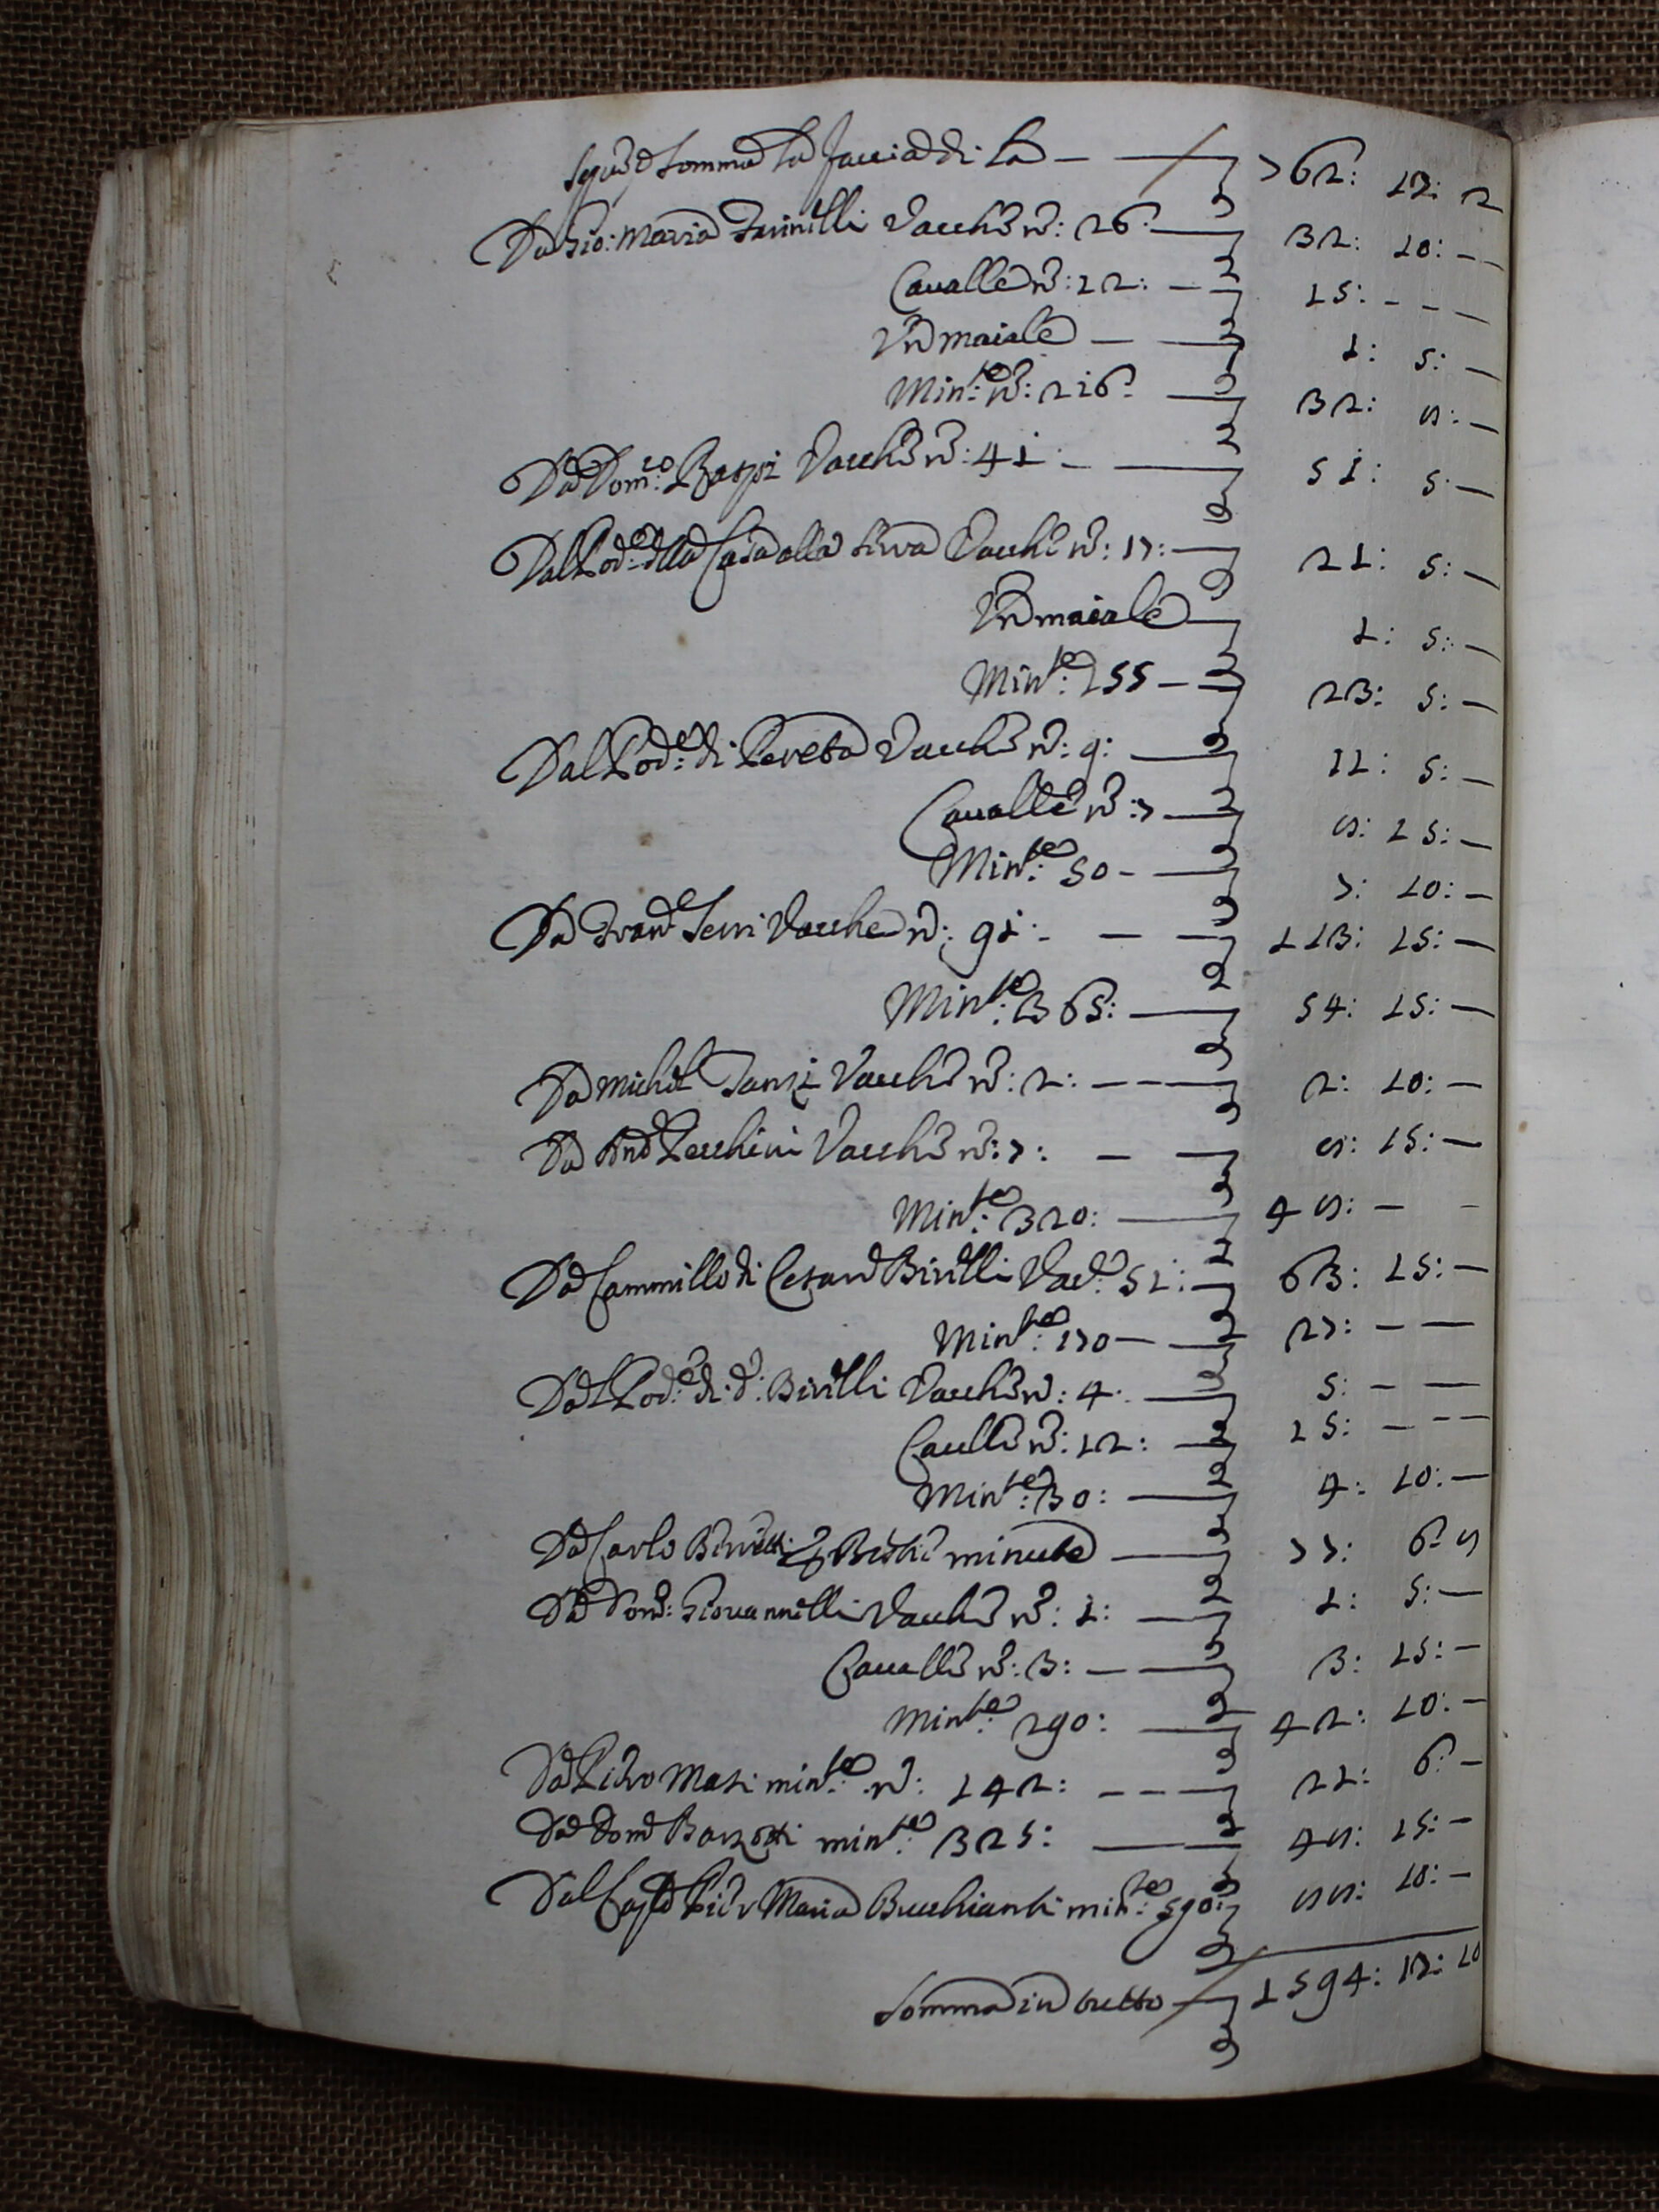 Segue e somma la facciad di la — 762: 12: 2
Da Gio: Maria Giannelli Vacche n: 26 — 32: 10: —
Cavalle n: 12: — 15: — —
Un maiale — 1: 5: —
Min:te n: 216 — 32: 8: —
Da Dom:co Baspi Vacche n: 41 — 51: 5: —
Dal Pod:e della Casa alla Vacche n: 17: — 21: 5: —
Un maiale — 1: 5: —
Min:te 155 — 23: 5: —
Dal Pod:e di Pereta Vacche n: 9: — 11: 5: —
Cavalle n: 7 — 8: 15: —
Min:te 50 — 7: 10: —
Da Serri Vacche n: 91 — 113: 15: —
Min:te 365: — 54: 15: —
Da Michel Vacche n: 2: — 2: 10: —
Da And Pecchini Vacche n: 7: — 8: 15: —
Min:te 320: — 48: — —
Da Cammillo di Cesare Birelli Vac: 51: — 63: 15: —
Min:te 170 — 27: — —
Dal Pod:e di d: Birelli Vacche n: 4 — 5: — —
Cavalle n: 12: — 15: — —
Min:te 30: — 4: 10: —
Da Carlo Bestie minute — 77: 6: 8
Da Dom: Giovannelli Vacche n: 1: — 1: 5: —
Cavalle n: 3: — 3: 15: —
Min:te 290: — 42: 10: —
Da Pietro Masi min:te n: 142: — 21: 6: —
Da Dom Barzotti min:te 325: — 48: 15: —
Dal Cap Pier Maria Bucchianti min:te 590: — 88: 10: —
Somma in tutto — 1594: 12: 10